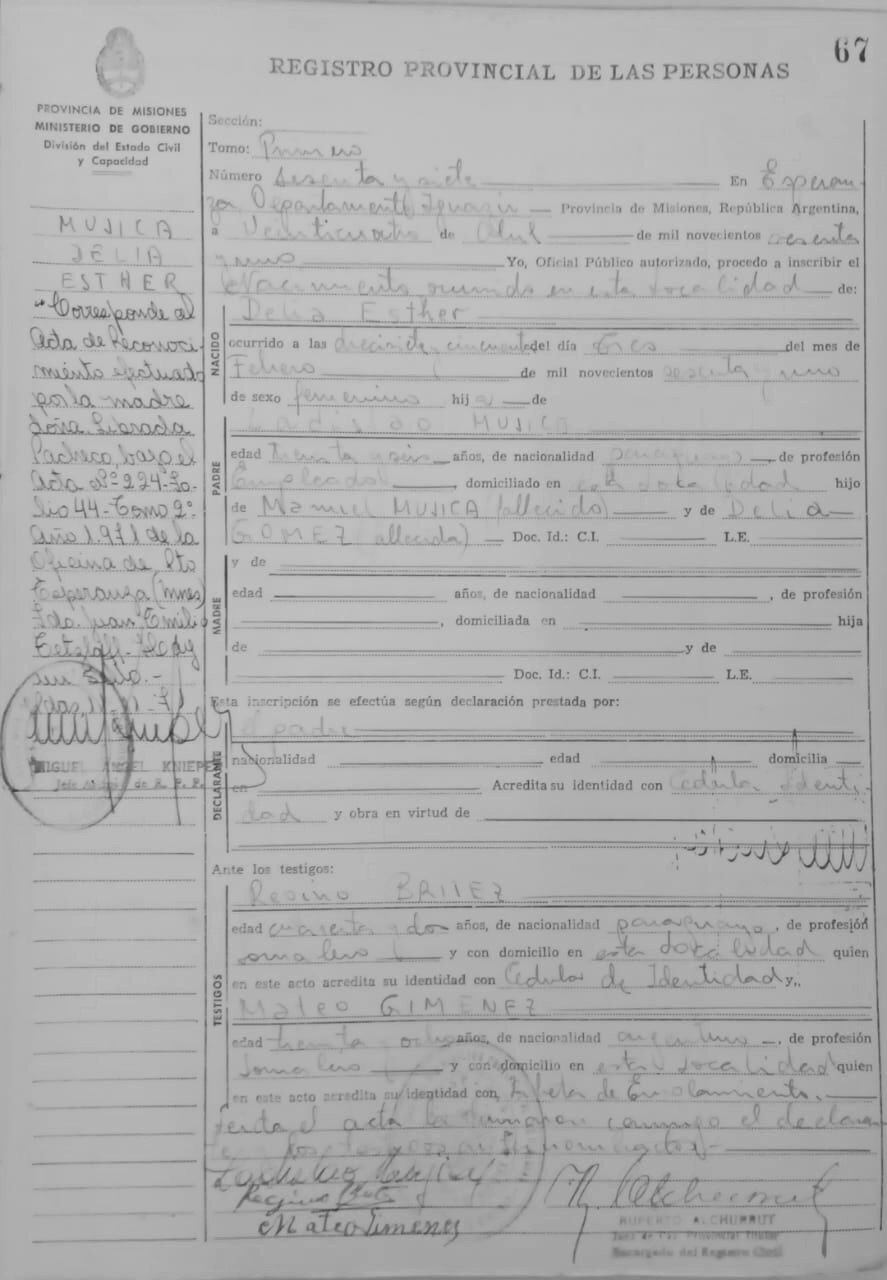 67
REGISTRO PROVINCIAL DE LAS PERSONAS
PROVINCIA DE MISIONES
MINISTERIO DE GOBIERNO
División del Estado Civil
y Capacidad
MUJICA
DELIA
ESTHER
Corresponde al
Acta de Reconoci-
miento efectuado
por la madre
doña Librada
Pacheco, bajo el
Acta nº 224-Fo-
lio 44-Tomo 2º
Año 1.971 de la
Oficina de Pto
Esperanza (Mnes)
Fdo. Juan Emilio
MIGUEL ANGEL KNIEPE
Sección:
Tomo: Primero
Número Sesenta y siete En Esperan-
za Departamento Iguazú Provincia de Misiones, República Argentina,
a Veinticuatro de Abril de mil novecientos sesenta
y uno Yo, Oficial Público autorizado, procedo a inscribir el
Nacimiento ocurrido en esta localidad de:
NACIDO
Delia Esther
ocurrido a las diecisiete y cincuenta del día tres del mes de
Febrero de mil novecientos sesenta y uno
de sexo femenino hija de
PADRE
Ladislao MUJICA
edad treinta y seis años, de nacionalidad paraguayo, de profesión
Empleado, domiciliado en esta localidad hijo
de Manuel MUJICA (fallecido) y de Delia
GOMEZ (fallecida) Doc. Id.: C.I. L.E.
MADRE
y de
edad años, de nacionalidad , de profesión
, domiciliada en hija
de y de
Doc. Id.: C.I. L.E.
Esta inscripción se efectúa según declaración prestada por:
DECLARANTE
el padre
nacionalidad edad domicilia
en Acredita su identidad con Cedula Identi-
dad y obra en virtud de
Ante los testigos:
TESTIGOS
Regino BRITEZ
edad cuarenta y dos años, de nacionalidad paraguayo, de profesión
jornalero y con domicilio en esta localidad quien
en este acto acredita su identidad con Cedula de Identidad y,,
Mateo GIMENEZ
edad treinta y ocho años, de nacionalidad argentino, de profesión
Jornalero y con domicilio en esta localidad quien
en este acto acredita su identidad con Libreta de Enrolamiento.
Leida el acta la firmaron conmigo el declaran-
te y los testigos
Mateo Jimenes
RUPERTO ALCHURRUT
Juez de Paz Provincial Titular
Encargado del Registro Civil